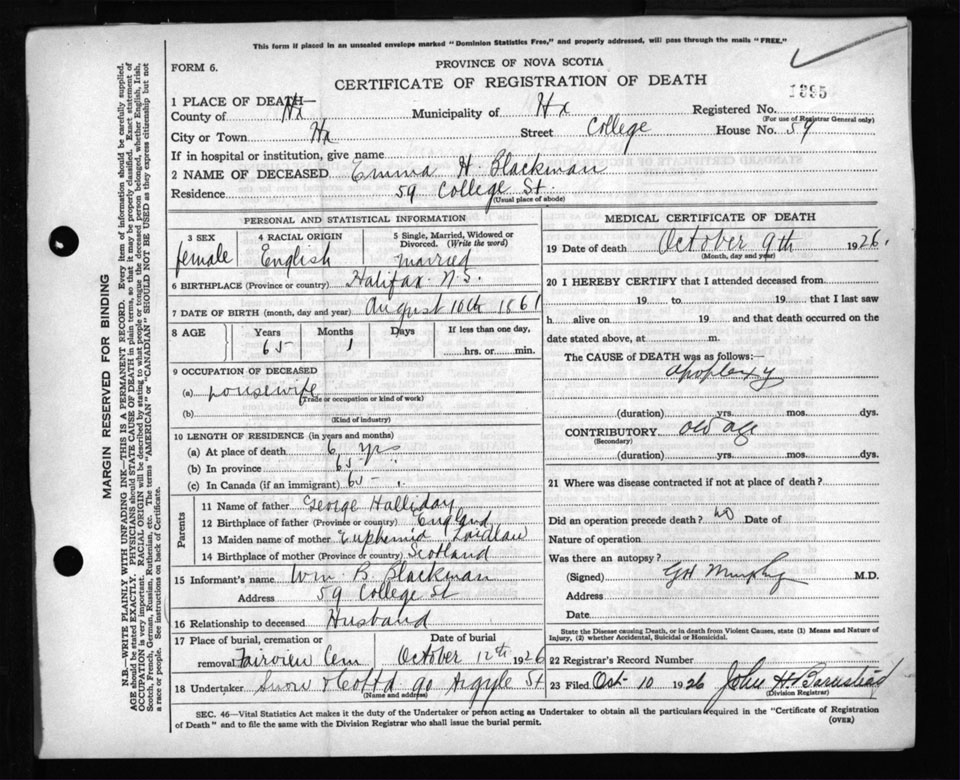 This form if placed in an unsealed envelope marked "Dominion Statistics Free," and properly addressed, will pass through the mails "FREE."
FORM 6.
PROVINCE OF NOVA SCOTIA
CERTIFICATE OF REGISTRATION OF DEATH
1395
1 PLACE OF DEATH—
County of Hx Municipality of Hx Registered No.
(For use of Registrar General only)
City or Town Hx Street College House No. 59
If in hospital or institution, give name
2 NAME OF DECEASED Emma H. Blackman
Residence 59 College St.
(Usual place of abode)
PERSONAL AND STATISTICAL INFORMATION
3 SEX 4 RACIAL ORIGIN 5 Single, Married, Widowed or Divorced. (Write the word)
female English married
6 BIRTHPLACE (Province or country) Halifax N.S.
7 DATE OF BIRTH (month, day and year) August 10th 1861
8 AGE Years Months Days If less than one day,
65 1 hrs. or min.
9 OCCUPATION OF DECEASED
(a) housewife
(Trade or occupation or kind of work)
(b)
(Kind of industry)
10 LENGTH OF RESIDENCE (in years and months)
(a) At place of death 6 yrs
(b) In province 65
(c) In Canada (if an immigrant) 65
Parents
11 Name of father George Halliday
12 Birthplace of father (Province or country) England
13 Maiden name of mother Euphemia Laidlaw
14 Birthplace of mother (Province or country) Scotland
15 Informant's name Wm B Blackman
Address 59 College St
16 Relationship to deceased Husband
17 Place of burial, cremation or removal Fairview Cem
Date of burial October 12th 1926
18 Undertaker Snow & Co Ltd 90 Argyle St
(Name and address)
MEDICAL CERTIFICATE OF DEATH
19 Date of death October 9th 1926.
(Month, day and year)
20 I HEREBY CERTIFY that I attended deceased from
19 to 19 that I last saw
h alive on 19 and that death occurred on the
date stated above, at m.
The CAUSE OF DEATH was as follows:—
apoplexy
(duration) yrs. mos. dys.
CONTRIBUTORY old age
(Secondary)
(duration) yrs. mos. dys.
21 Where was disease contracted if not at place of death?
Did an operation precede death? no Date of
Nature of operation
Was there an autopsy?
(Signed) GH Murphy M.D.
Address
Date
State the Disease causing Death, or in death from Violent Causes, state (1) Means and Nature of
Injury, (2) whether Accidental, Suicidal or Homicidal.
22 Registrar's Record Number
23 Filed Oct 10 1926 John H. Barnstead
(Division Registrar)
SEC. 46—Vital Statistics Act makes it the duty of the Undertaker or person acting as Undertaker to obtain all the particulars required in the "Certificate of Registration
of Death" and to file the same with the Division Registrar who shall issue the burial permit.
(OVER)
MARGIN RESERVED FOR BINDING
N.B.—WRITE PLAINLY WITH UNFADING INK—THIS IS A PERMANENT RECORD. Every item of information should be carefully supplied.
AGE should be stated EXACTLY. PHYSICIANS should STATE CAUSE OF DEATH in plain terms, so that it may be properly classified. Exact statement of
OCCUPATION is very important. RACIAL ORIGIN will be described by stating to what people or tongue the deceased person belonged, whether English, Irish,
Scotch, French, German, Russian, Ruthenian, etc. The terms "AMERICAN" or "CANADIAN" SHOULD NOT BE USED as they express citizenship but not
a race or people. See instructions on back of Certificate.